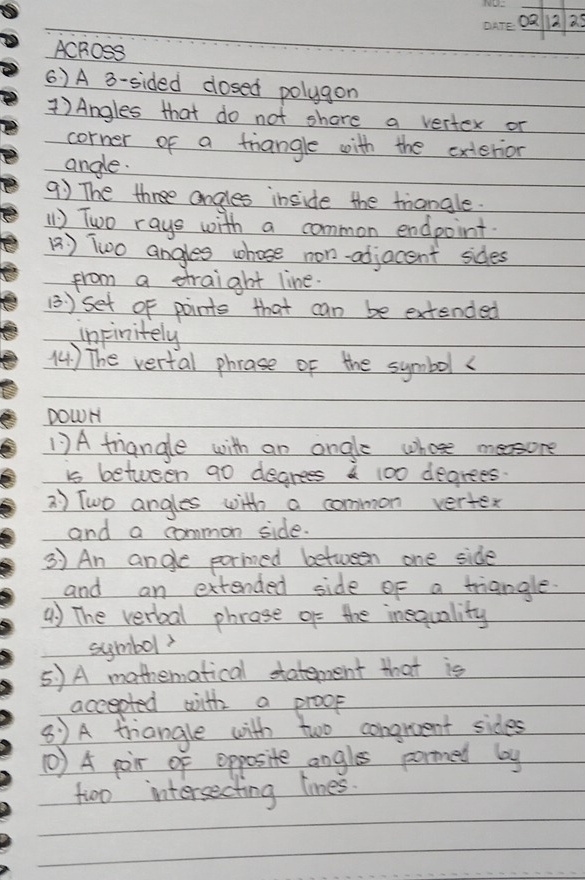 NO.:
DATE 02 12 25
ACROSS
6.) A 3-sided closed polygon
7.) Angles that do not share a vertex or
corner of a triangle with the exterior
angle.
9.) The three angles inside the triangle.
11.) Two rays with a common endpoint.
12.) Two angles whose non-adjacent sides
from a straight line.
13.) Set of points that can be extended
infinitely
14.) The vertal phrase of the symbol <
DOWN
1.) A triangle with an angle whose measure
is between 90 degrees & 100 degrees.
2.) Two angles with a common vertex
and a common side.
3.) An angle formed between one side
and an extended side of a triangle.
4.) The verbal phrase of the inequality
symbol >
5.) A mathematical statement that is
accepted with a proof
8.) A triangle with two congruent sides
10.) A pair of opposite angles formed by
two intersecting lines.